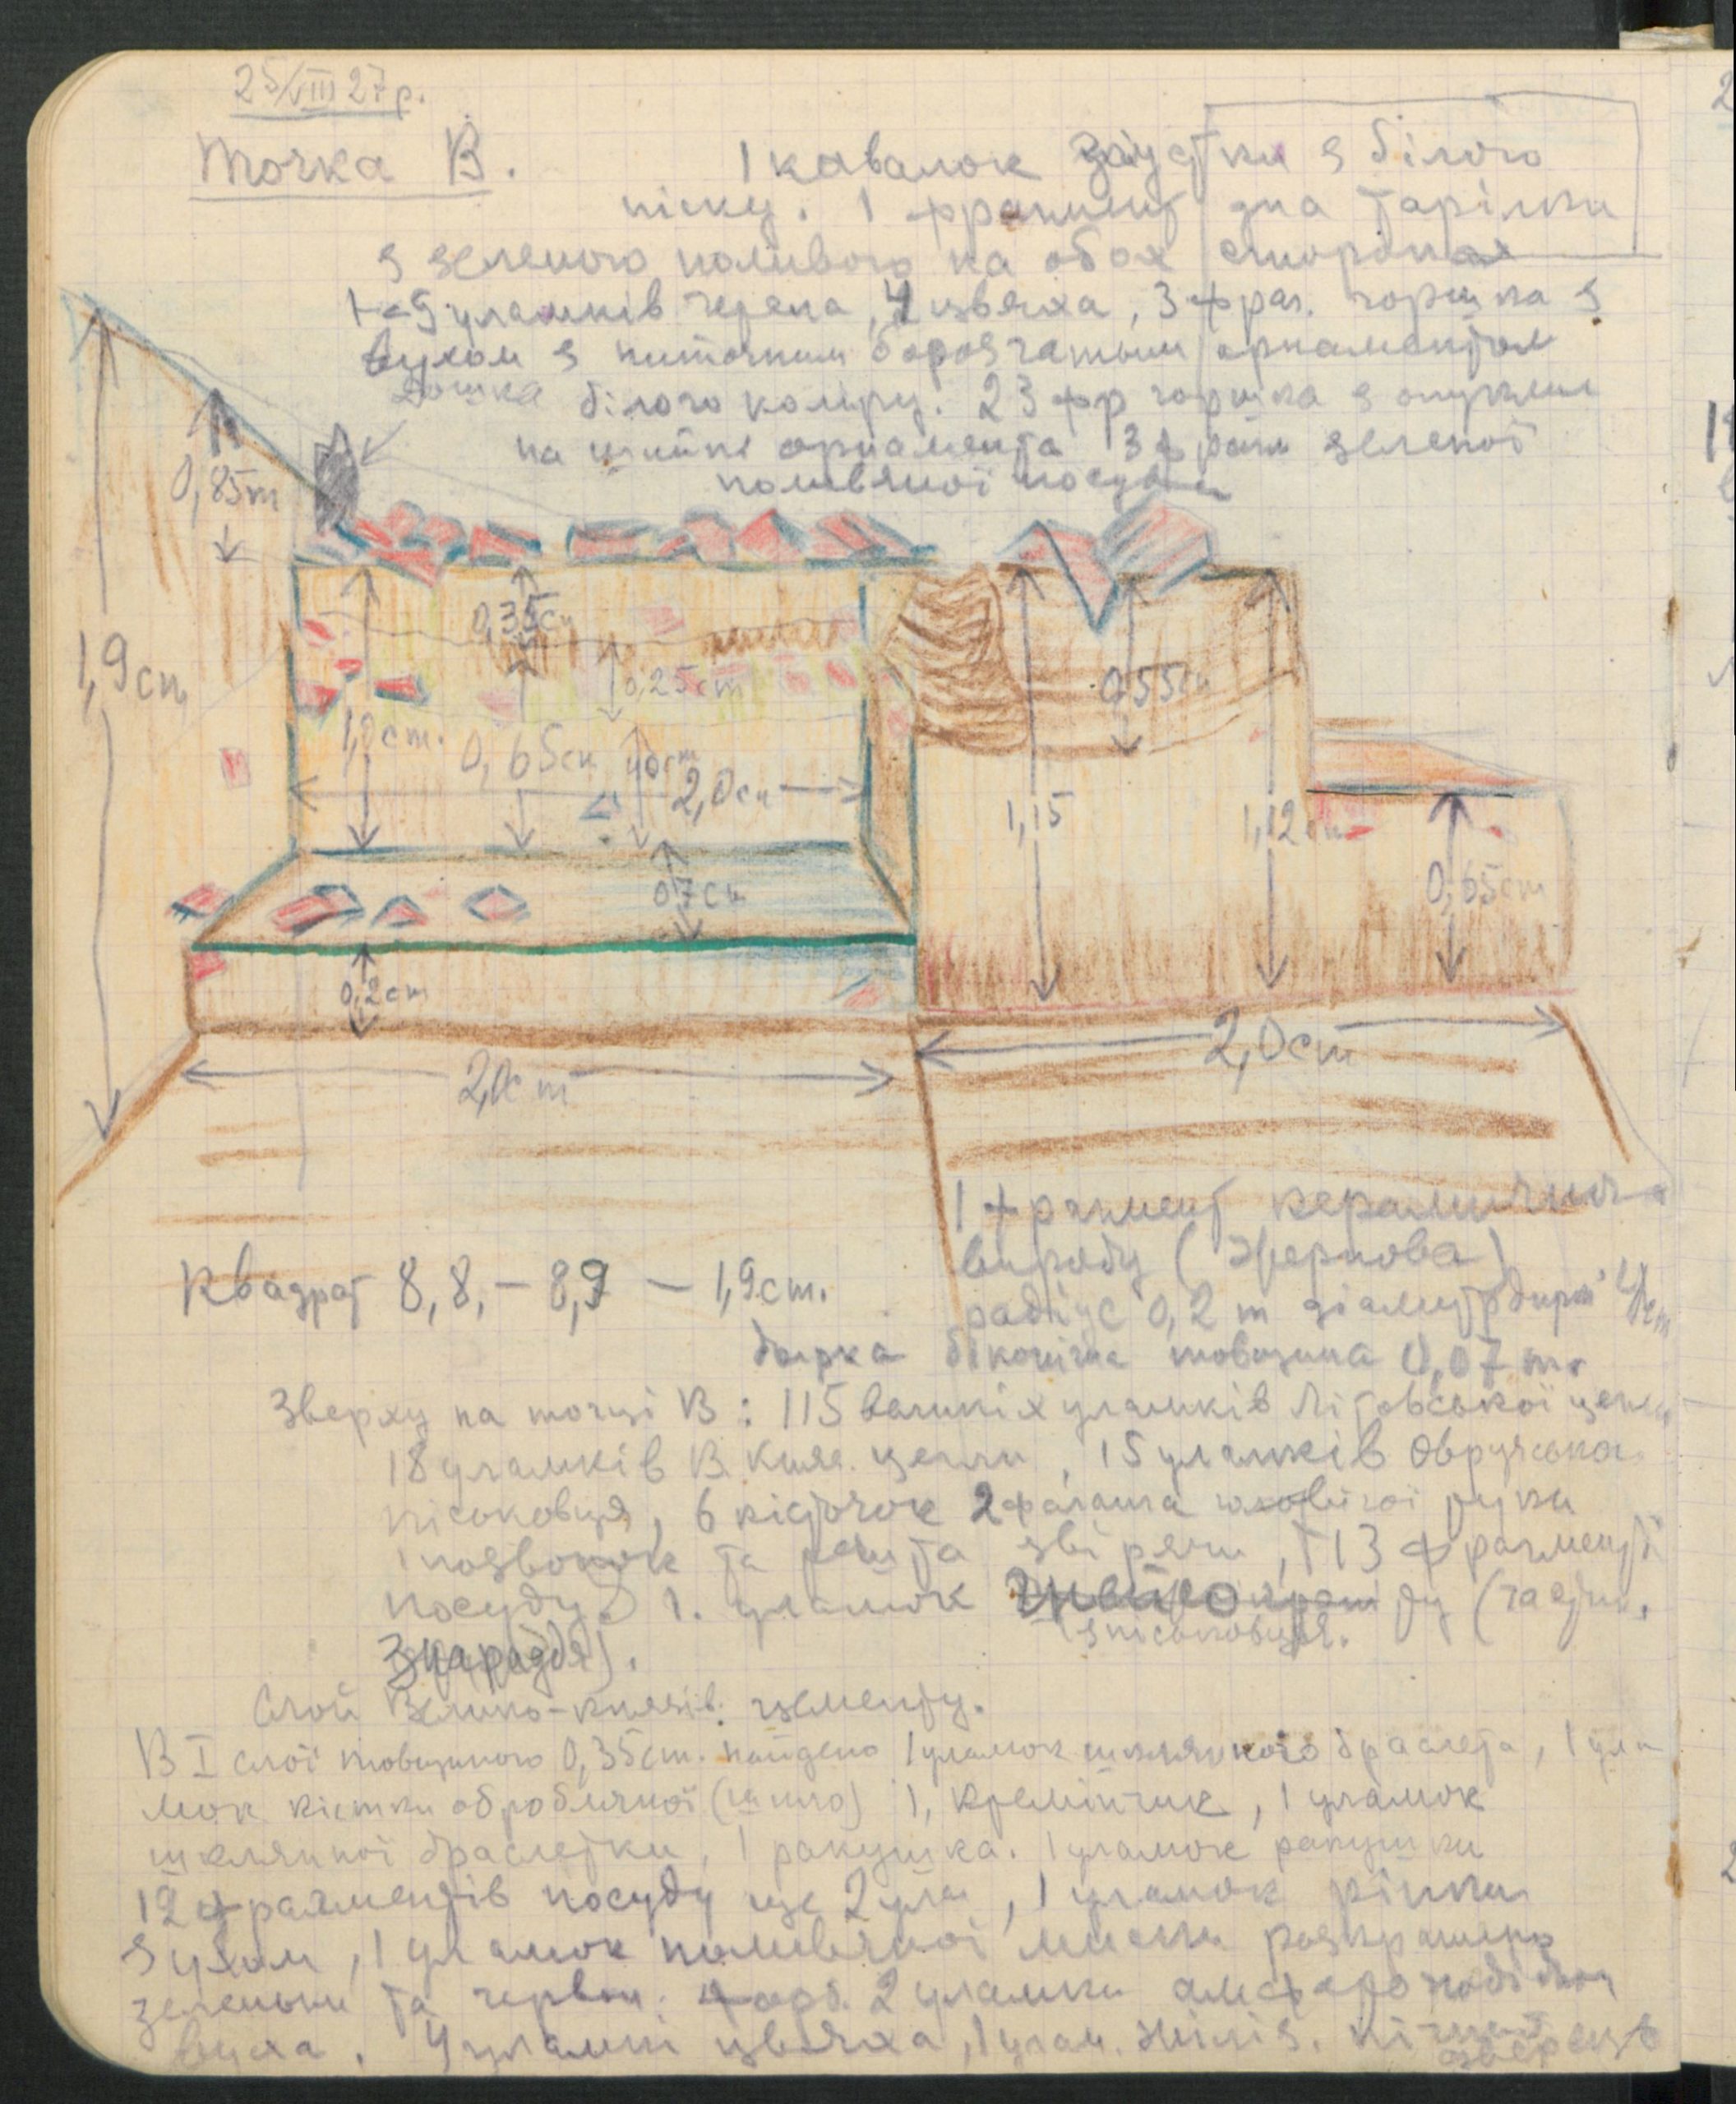 25/VIII 27р.
Точка В.
1 кавалок з білого
піску. 1 фрагмент дна тарілки
з зеленого поливого на обох сторонах
уламків черепа, 4 цвяха, 3 фраг. горшка з
вухом з орнаментом
дошка
білого коліру. 23 фр горшка з опуклим
на шийці орнамента 3 фрагм зеленої
поливяної посуди
0,85m
1,9cm
0,35cm
0,25cm
1,0cm.
0,65cm
40cm
2,0cm
0,7cm
0,2cm
2,0cm
0,55cm
1,15
1,12cm
0,65cm
2,0cm
1 фрагмент керамичного
виробу (Жернова)
Квадрат 8,8, – 8,9 – 1,9cm.
радіус 0,2 m діаметр дирки 4cm
дирка біконічна товщина 0,07 m.
Зверху на точці В: 115 великіх уламків Літовської цегли
18 уламків В. Княж. цегли, 15 уламків Овруцького
пісковця, 6 кісточок 2 фаланга руки
1 позвонок та решта звірячи, 113 фрагменті
посуду. 1. уламок (части.
з пісковця.
знаряддя).
Слой Велико-князів. цементу.
В I слої товщиною 0,35cm. найдено 1 уламок шкляного браслета, 1 ула
мок кістки обробляної (шило) 1, кремінчик, 1 уламок
шкляної браслетки, 1 ракушка. 1 уламок ракушки
12 фрагментів посуду ще 2 ула, 1 уламок рінки
з ухом, 1 уламок поливяної миски розкрашеною
зеленим та червон. фарб. 2 уламки амфароподібного
вуха. 4 уламкі цвяха, 1 улам. заліз.